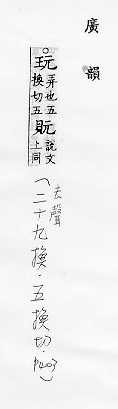 廣韻
○玩弄也五換切五貦說文上同
(去聲二十九換．五換切．P403)